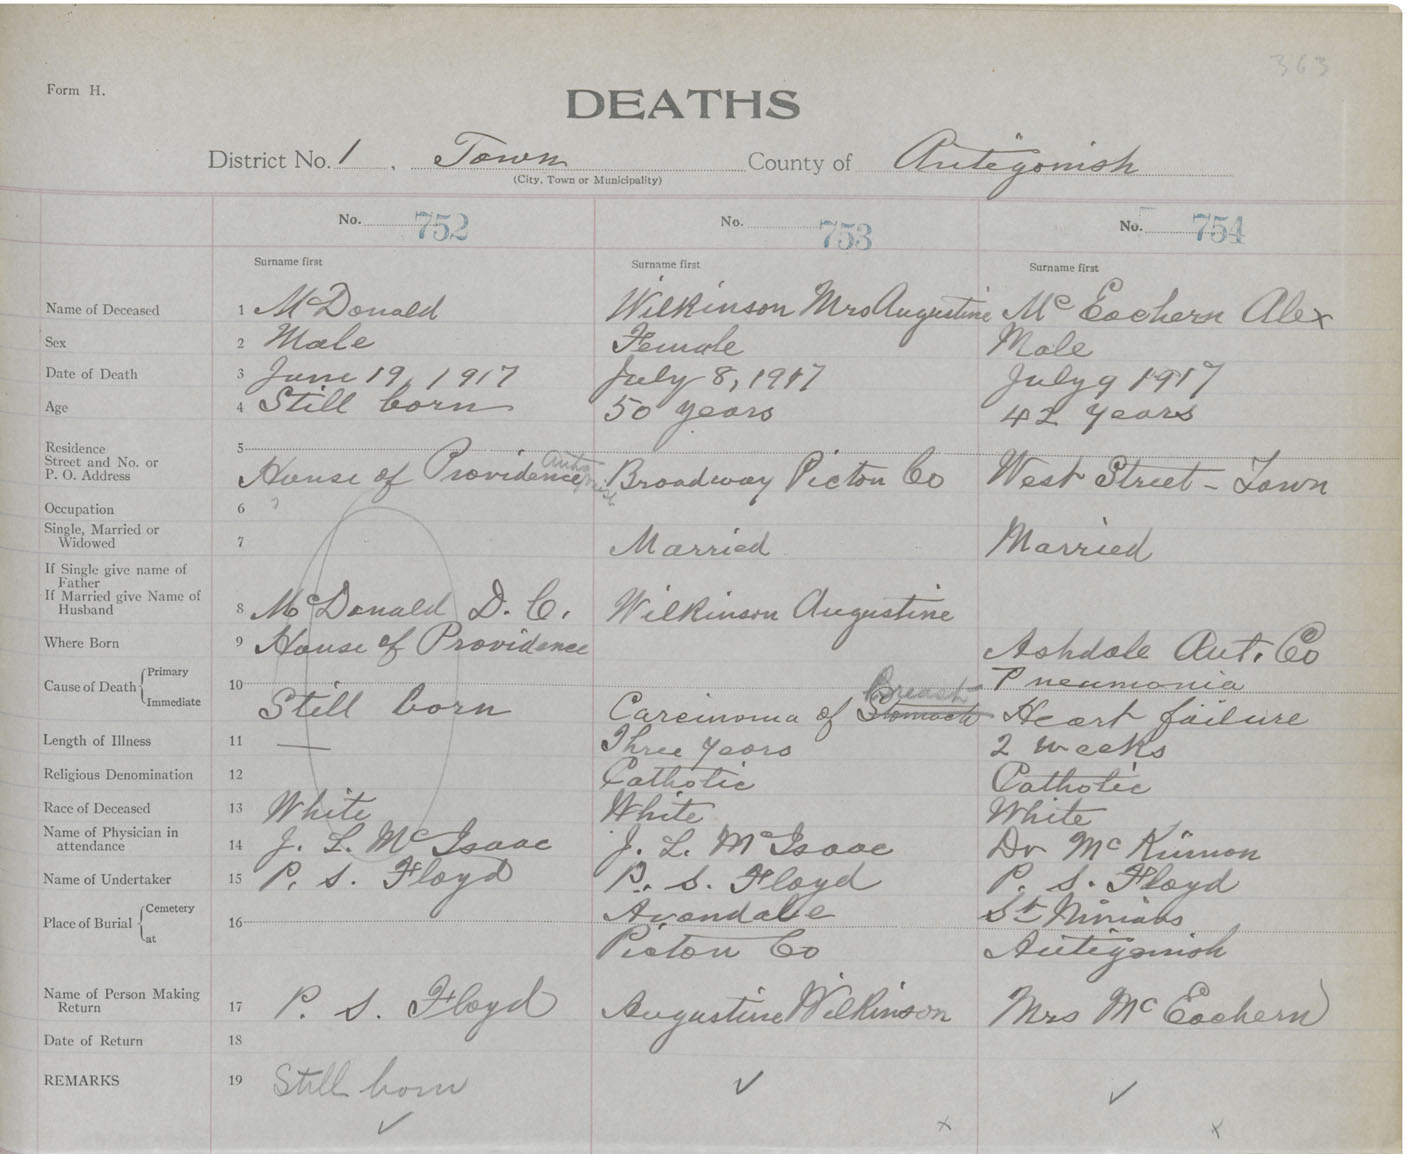 363
Form H.
DEATHS
District No. 1, Town County of Antigonish
(City, Town or Municipality)
No. 752 No. 753 No. 754
Surname first Surname first Surname first
Name of Deceased 1 McDonald Wilkinson Mrs Augustine McEachern Alex
Sex 2 Male Female Male
Date of Death 3 June 19, 1917 July 8, 1917 July 9 1917
Age 4 Still born 50 years 42 years
Residence 5
Street and No. or
P. O. Address House of Providence Antigonish Broadway Picton Co West Street - Town
Occupation 6 ?
Single, Married or
Widowed 7 Married Married
If Single give name of
Father
If Married give Name of
Husband 8 McDonald D. C. Wilkinson Augustine
Where Born 9 House of Providence Ashdale Ant. Co
Cause of Death Primary 10 Pneumonia
Immediate Still born Carcinoma of Stomach Breast Heart failure
Length of Illness 11 — Three years 2 weeks
Religious Denomination 12 Catholic Catholic
Race of Deceased 13 White White White
Name of Physician in
attendance 14 J. L. McIsaac J. L. McIsaac Dr McKinnon
Name of Undertaker 15 P. S. Floyd P. S. Floyd P. S. Floyd
Place of Burial Cemetery 16 Avondale St Ninians
at Picton Co Antigonish
Name of Person Making
Return 17 P. S. Floyd Augustine Wilkinson Mrs McEachern
Date of Return 18
REMARKS 19 Still born ✓ ✓
✓ x x